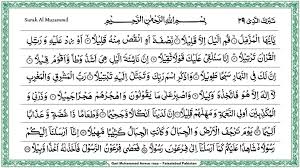 Surah Al Muzammal بِسْمِ اللهِ الرَّحْمٰنِ الرَّحِيْمِ تَبٰرَكَ الَّذِیْ ٢٩
يٰۤاَيُّهَا الْمُزَّمِّلُ ۙ قُمِ الَّيْلَ اِلَّا قَلِيْلًا ۙ نِّصْفَهٗۤ اَوِ انْقُصْ مِنْهُ قَلِيْلًا ۙ اَوْ زِدْ عَلَيْهِ وَرَتِّلِ
الْقُرْاٰنَ تَرْتِيْلًا ؕ اِنَّا سَنُلْقِيْ عَلَيْكَ قَوْلًا ثَقِيْلًا اِنَّ نَاشِئَةَ الَّيْلِ هِيَ اَشَدُّ وَطْاً وَّاَقْوَمُ
قِيْلًا ؕ اِنَّ لَكَ فِي النَّهَارِ سَبْحًا طَوِيْلًا ؕ وَاذْكُرِ اسْمَ رَبِّكَ وَتَبَتَّلْ اِلَيْهِ تَبْتِيْلًا ؕ رَبُّ الْمَشْرِقِ وَالْمَغْرِبِ
لَاۤ اِلٰهَ اِلَّا هُوَ فَاتَّخِذْهُ وَكِيْلًا وَاصْبِرْ عَلٰى مَا يَقُوْلُوْنَ وَاهْجُرْهُمْ هَجْرًا جَمِيْلًا وَذَرْنِيْ وَ
الْمُكَذِّبِيْنَ اُولِي النَّعْمَةِ وَمَهِّلْهُمْ قَلِيْلًا اِنَّ لَدَيْنَاۤ اَنْكَالًا وَّجَحِيْمًا ۙ وَّطَعَامًا ذَا غُصَّةٍ وَّعَذَابًا
اَلِيْمًا يَوْمَ تَرْجُفُ الْاَرْضُ وَالْجِبَالُ وَكَانَتِ الْجِبَالُ كَثِيْبًا مَّهِيْلًا اِنَّاۤ اَرْسَلْنَاۤ اِلَيْكُمْ
رَسُوْلًا شَاهِدًا عَلَيْكُمْ كَمَاۤ اَرْسَلْنَاۤ اِلٰى فِرْعَوْنَ رَسُوْلًا ؕ فَعَصٰى فِرْعَوْنُ الرَّسُوْلَ